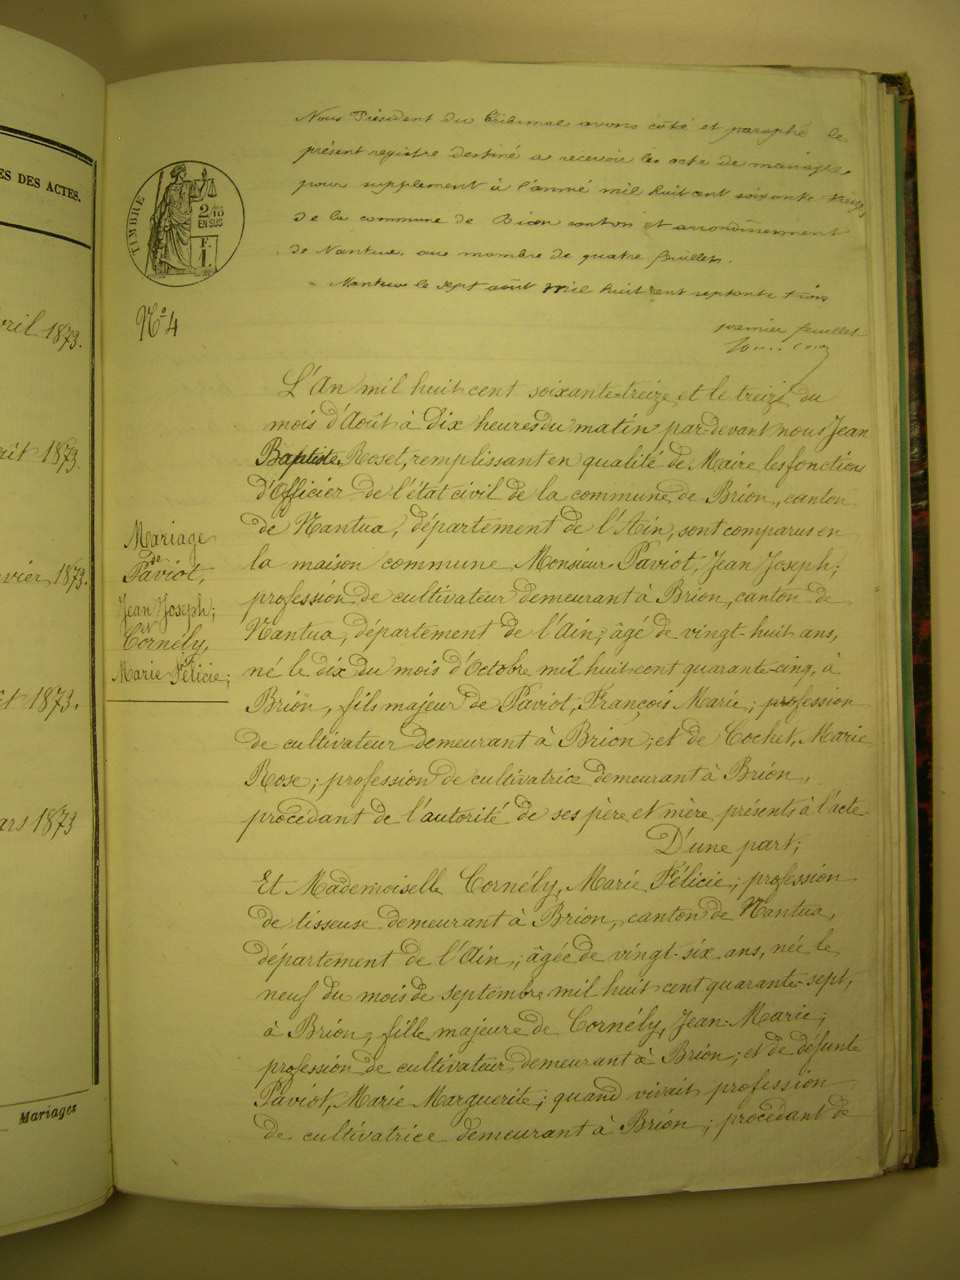 ES DES ACTES.
ril 1873.
ût 1873.
vrier 1873.
t 1873.
ars 1873
Mariages
TIMBRE
2/10
EN SUS
F.
1.
Nous Président du tribunal avons côté et paraphé le
présent registre destiné a recevoir les acte de mariages
pour supplement à l'année mil huit cent soixante treize
de la commune de Brion canton et arrondissement
de Nantua au nombre de quatre feuillets.
Nantua le sept août mil huit cent septante trois
premier feuillet
N° 4
L'An mil huit cent soixante-treize et le treize du
mois d'Août à Dix heures du matin par-devant nous Jean
Baptiste Rosel, remplissant en qualité de Maire les fonctions
d'Officier de l'état civil de la commune de Brion, canton
de Nantua, département de l'Ain, sont comparus en
la maison commune Monsieur Paviot, Jean Joseph;
profession de cultivateur demeurant à Brion, canton de
Nantua, département de l'Ain; âgé de vingt-huit ans,
né le dix du mois d'Octobre mil huit-cent quarante-cinq, à
Brion, fils majeur de Paviot, François Marie; profession
de cultivateur demeurant à Brion; et de Cochet, Marie
Rose; profession de cultivatrice demeurant à Brion,
procédant de l'autorité de ses père et mère présents à l'acte
D'une part;
Mariage
de
Paviot,
Jean Joseph;
et
Cornély,
Marie Félicie;
Et Mademoiselle Cornély, Marie Félicie; profession
de tisseuse demeurant à Brion, canton de Nantua,
département de l'Ain; âgée de vingt-six ans, née le
neuf du mois de septembre mil huit cent quarante-sept,
à Brion, fille majeure de Cornély, Jean-Marie;
profession de cultivateur demeurant à Brion; et de défunte
Paviot, Marie Marguerite; quand vivait profession
de cultivatrice demeurant à Brion; procédant de